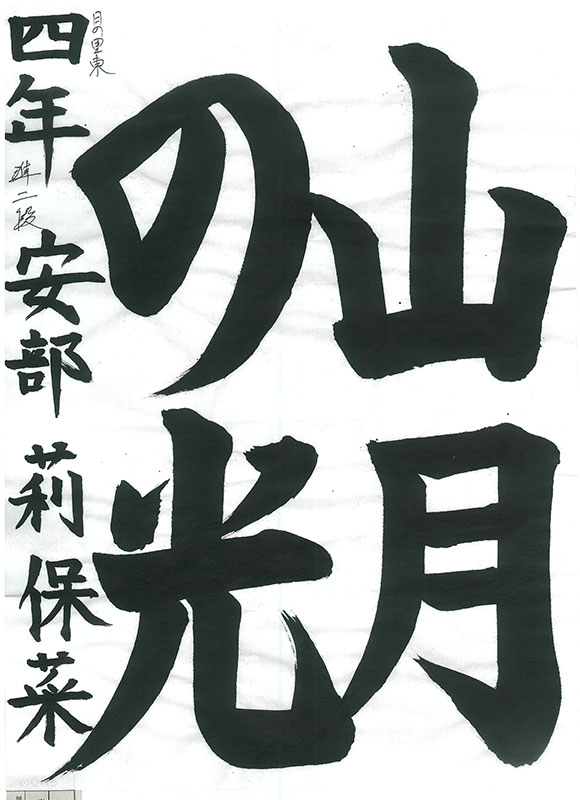 山月
の光
四年 安部 莉保菜
日の里東
準二段